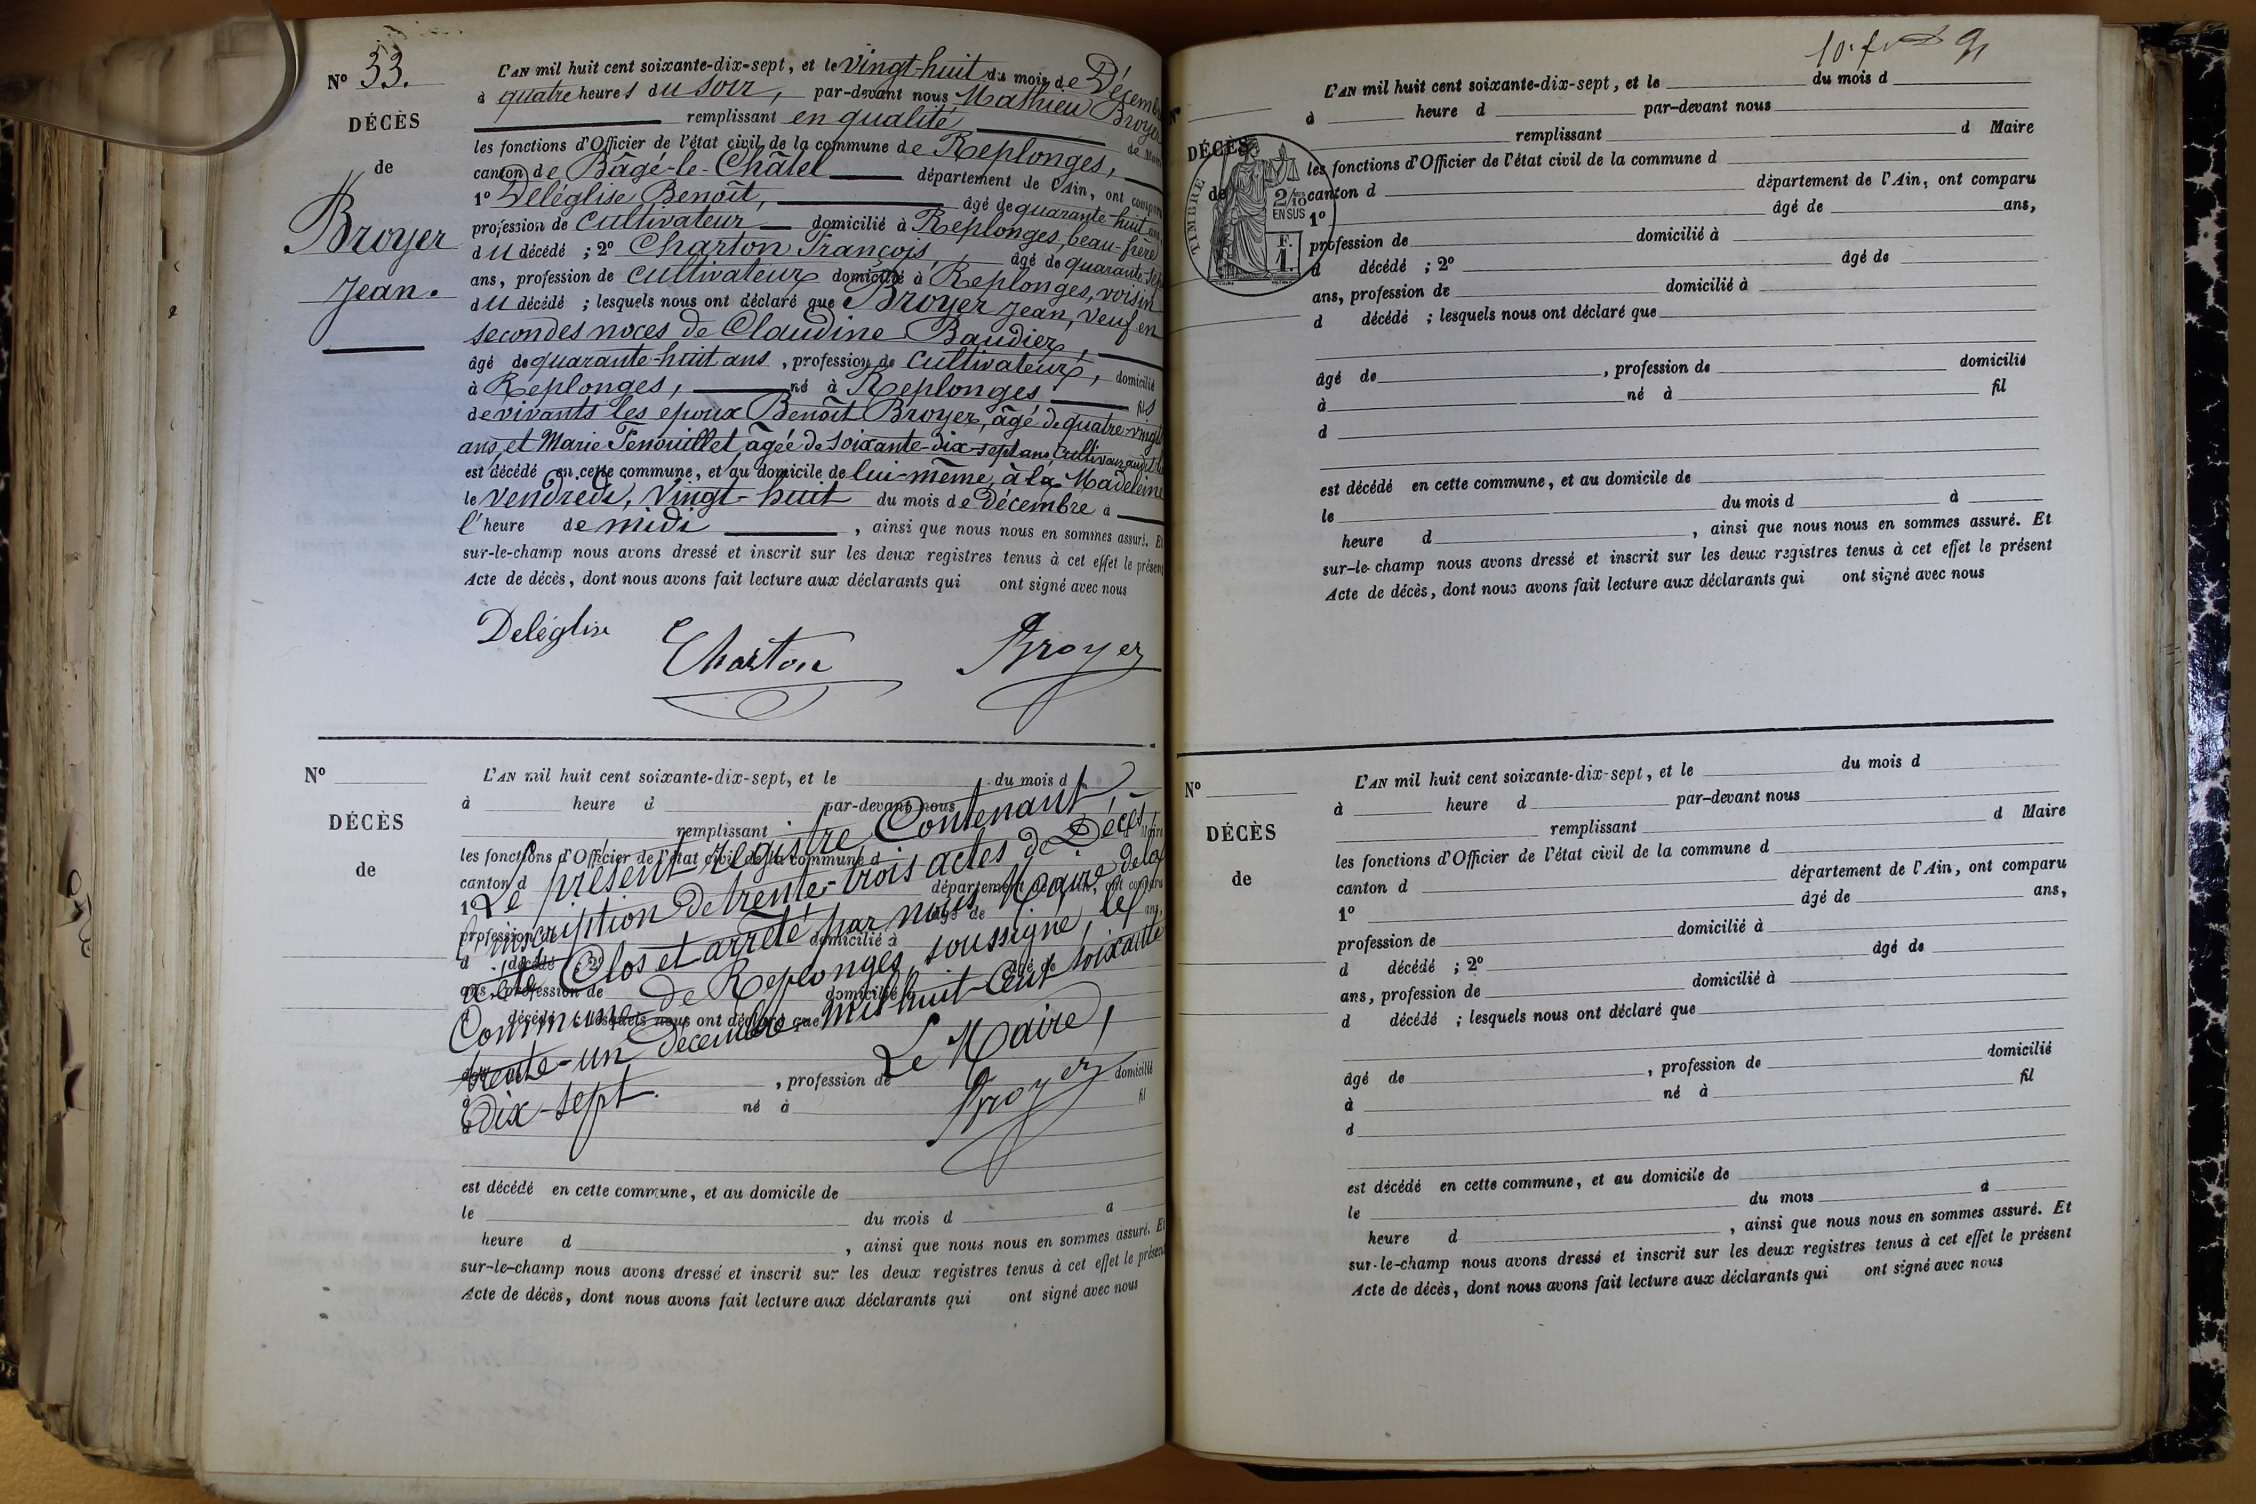 N° 33.
DÉCÈS
de
Broyer
Jean.
L'AN mil huit cent soixante-dix-sept, et le vingt-huit du mois de Décembre
à quatre heures du soir, par-devant nous Mathieu Broyer
remplissant en qualité de Maire
les fonctions d'Officier de l'état civil de la commune de Replonges,
canton de Bâgé-le-Châtel département de l'Ain, ont comparu
1° Deléglise Benoît, âgé de quarante-huit ans,
profession de cultivateur domicilié à Replonges, beau-frère
du décédé ; 2° Charton François, âgé de quarante-sept
ans, profession de cultivateur domicilié à Replonges, voisin
du décédé ; lesquels nous ont déclaré que Broyer Jean, veuf en
secondes noces de Claudine Baudier,
âgé de quarante-huit ans, profession de cultivateur, domicilié
à Replonges, né à Replonges fils
de vivants les époux Benoît Broyer, âgé de quatre-vingts
ans, et Marie Fenouillet, âgée de soixante-dix-sept ans,
est décédé en cette commune, et au domicile de lui-même, à la Madeleine
le vendredi, vingt-huit du mois de Décembre à
l'heure de midi, ainsi que nous nous en sommes assuré. Et
sur-le-champ nous avons dressé et inscrit sur les deux registres tenus à cet effet le présent
Acte de décès, dont nous avons fait lecture aux déclarants qui ont signé avec nous
Deléglise Charton Broyer
N°
DÉCÈS
de
L'AN mil huit cent soixante-dix-sept, et le du mois d
à heure d par-devant nous
remplissant Maire
les fonctions d'Officier de l'état civil de la commune d
canton d département de l'Ain, ont comparu
1° âgé de ans,
profession de domicilié à
d décédé ; 2° âgé de
ans, profession de domicilié à
d décédé ; lesquels nous ont déclaré que
, profession de domicilié
à né à fil
d
Le présent registre Contenant
l'inscription de trente-trois actes de Décès
a été Clos et arrêté par nous Maire de la
Commune de Replonges, soussigné, le
trente-un Décembre mil huit-Cent soixante
dix-sept.
Le Maire,
Broyer
est décédé en cette commune, et au domicile de
le du mois d à
heure d , ainsi que nous nous en sommes assuré. Et
sur-le-champ nous avons dressé et inscrit sur les deux registres tenus à cet effet le présent
Acte de décès, dont nous avons fait lecture aux déclarants qui ont signé avec nous
DÉCÈS
de
TIMBRE
2/10
EN SUS
F.
1.
L'AN mil huit cent soixante-dix-sept, et le du mois d
à heure d par-devant nous
remplissant d Maire
les fonctions d'Officier de l'état civil de la commune d
canton d département de l'Ain, ont comparu
1° âgé de ans,
profession de domicilié à
d décédé ; 2° âgé de
ans, profession de domicilié à
d décédé ; lesquels nous ont déclaré que
âgé de , profession de domicilié
à né à fil
d
est décédé en cette commune, et au domicile de
le du mois d à
heure d , ainsi que nous nous en sommes assuré. Et
sur-le-champ nous avons dressé et inscrit sur les deux registres tenus à cet effet le présent
Acte de décès, dont nous avons fait lecture aux déclarants qui ont signé avec nous
N°
DÉCÈS
de
L'AN mil huit cent soixante-dix-sept, et le du mois d
à heure d par-devant nous
remplissant d Maire
les fonctions d'Officier de l'état civil de la commune d
canton d département de l'Ain, ont comparu
1° âgé de ans,
profession de domicilié à
d décédé ; 2° âgé de
ans, profession de domicilié à
d décédé ; lesquels nous ont déclaré que
âgé de , profession de domicilié
à né à fil
d
est décédé en cette commune, et au domicile de
le du mois à
heure d , ainsi que nous nous en sommes assuré. Et
sur-le-champ nous avons dressé et inscrit sur les deux registres tenus à cet effet le présent
Acte de décès, dont nous avons fait lecture aux déclarants qui ont signé avec nous